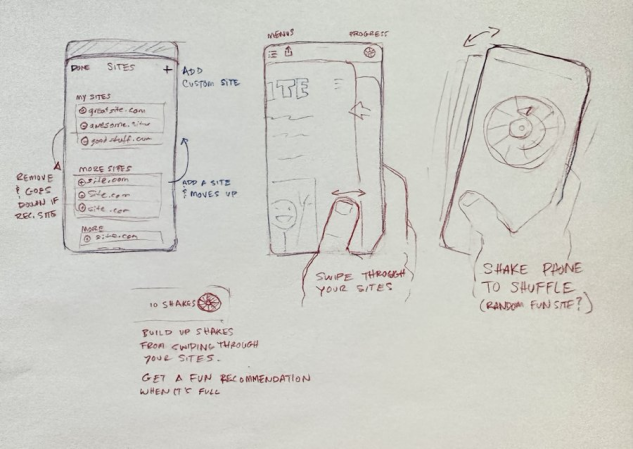 DONE SITES +
MY SITES
greatsite.com
awesome.site
goodstuff.com
MORE SITES
site.com
site.com
site.com
MORE
site.com
ADD
CUSTOM SITE
REMOVE
& GOES
DOWN IF
REC. SITE
ADD A SITE
& MOVES UP
MENUS
PROGRESS
ITE
SWIPE THROUGH
YOUR SITES
SHAKE PHONE
TO SHUFFLE
(RANDOM FUN SITE?)
10 SHAKES
BUILD UP SHAKES
FROM SWIPING THROUGH
YOUR SITES.
GET A FUN RECOMMENDATION
WHEN IT'S FULL